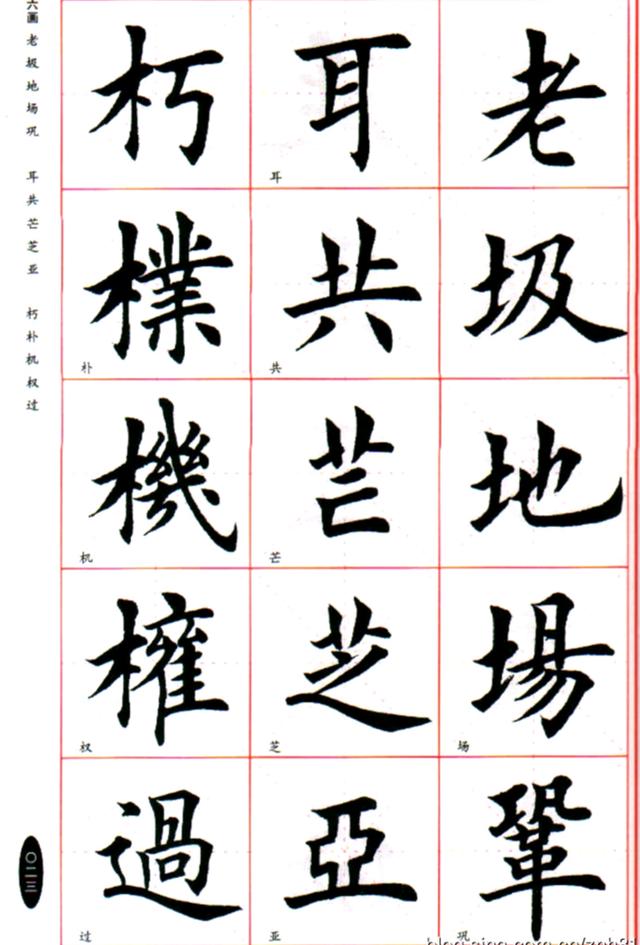 老
圾
地
場
场
鞏
巩
耳
耳
共
共
芒
芒
芝
芝
亞
亚
朽
樸
朴
機
机
權
权
過
过
六画 老圾地场巩 耳共芒芝亚 朽朴机权过
〇二三